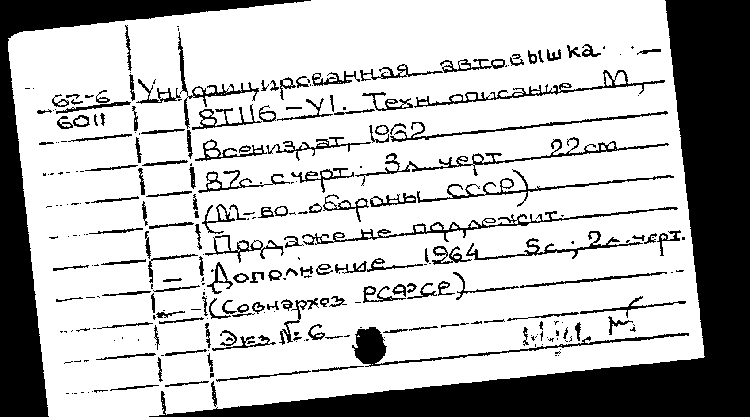 62-6
6011
Унифицированная автовышка
8Т116-У1. Техн. описание М,
Воениздат, 1962
87с. с черт.; 3л черт 22cm
(М-во обороны СССР)
Продаже не подлежит.
Дополнение 1964 5с.; 2л. черт.
(Совнархоз РСФСР)
Экз № 6